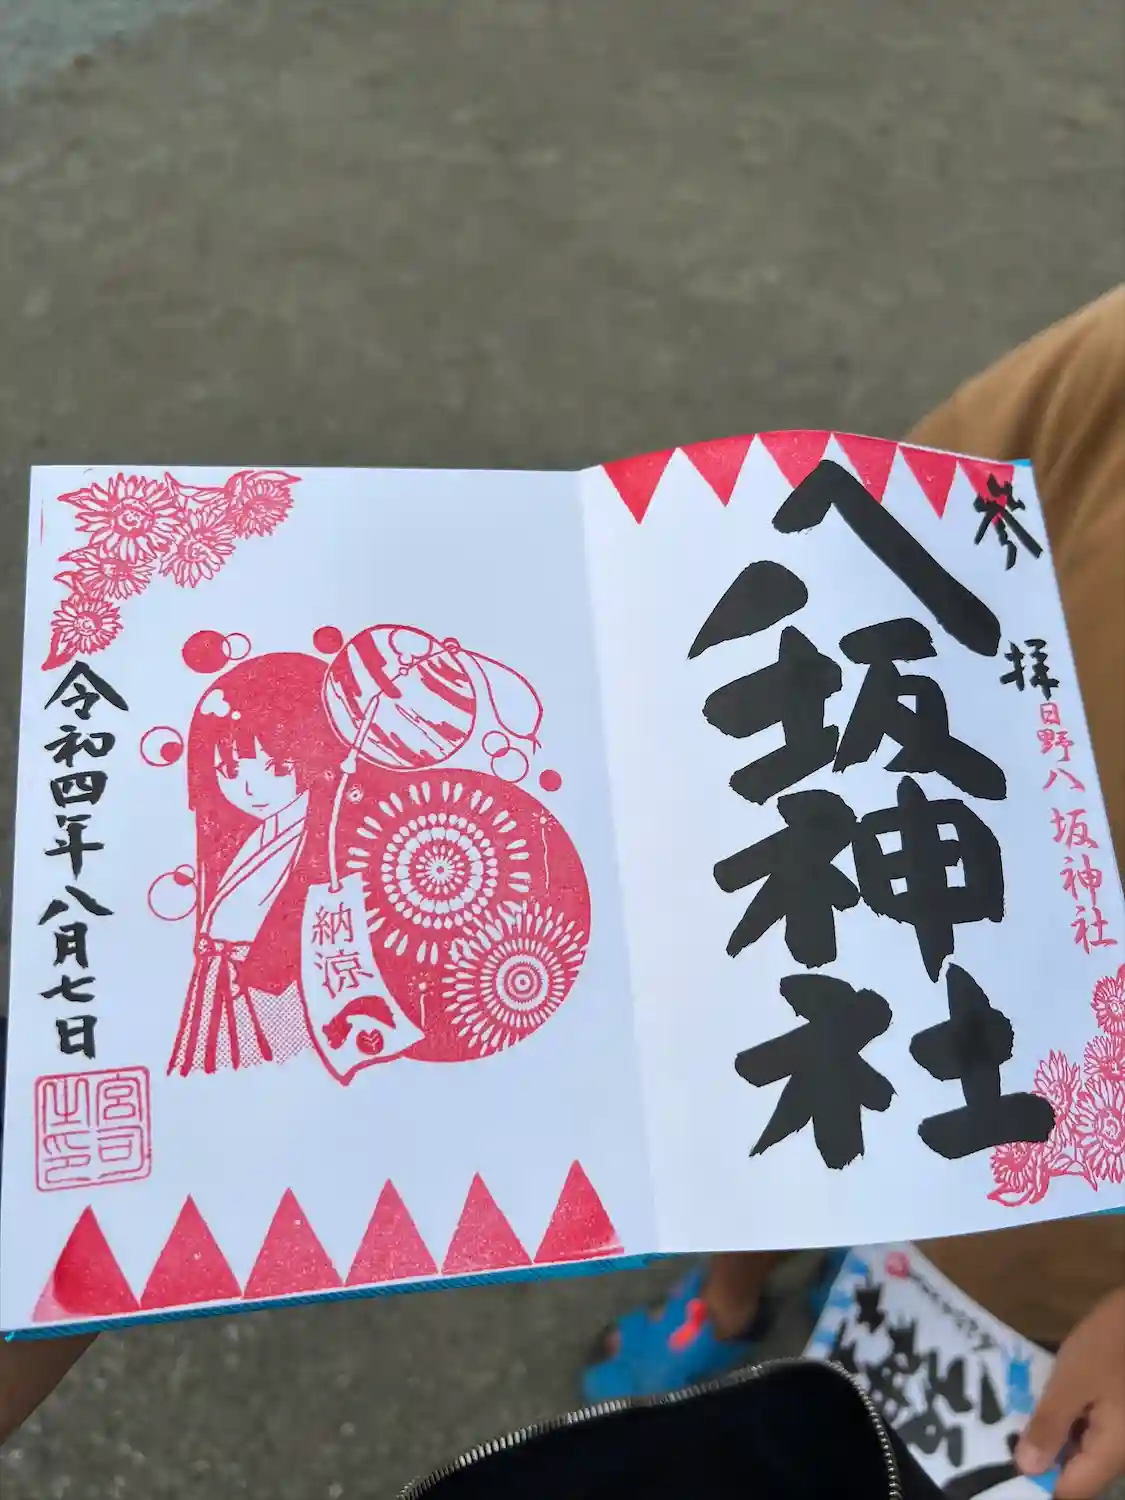 参拝
日野八坂神社
八坂神社
納涼
令和四年八月七日
宮司
之印